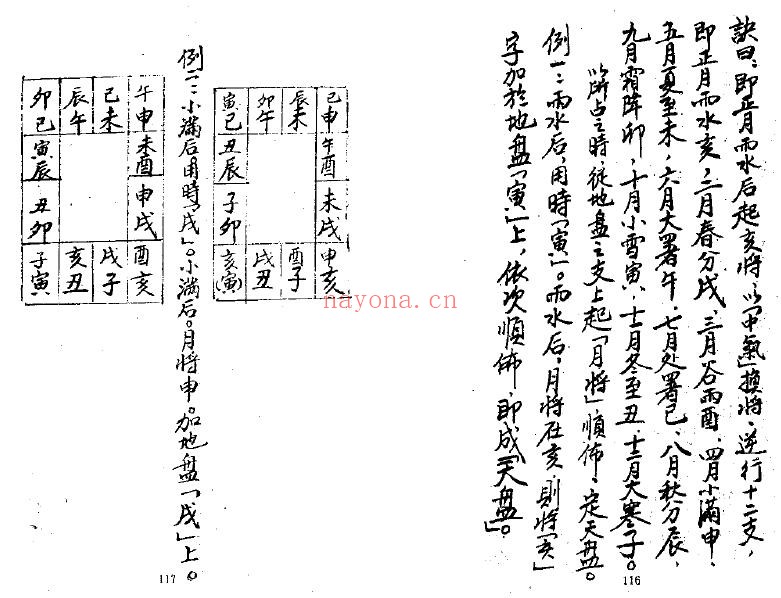 訣曰：即正月雨水后起亥將，以「中氣」換將，逆行十二支，
即正月雨水亥，二月春分戌，三月谷雨酉，四月小滿申，
五月夏至未，六月大署午，七月处署巳，八月秋分辰，
九月霜降卯，十月小雪寅，十一月冬至丑，十二月大寒子。
以所占之時，從地盘之支上起「月將」順佈，定天盘。
例一：雨水后，用時「寅」。雨水后，月將在亥，則將「亥」
字加於地盘「寅」上，依次順佈，即成「天盘」。
116
寅巳 卯午 辰未 巳申
丑辰 午酉
子卯 未戌
亥(寅) 戌丑 酉子 申亥
例二：小滿后，用時「戌」。小滿后。月將申。加地盘「戌」上。
卯巳 辰午 巳未 午申
寅辰 未酉
丑卯 申戌
子寅 亥丑 戌子 酉亥
117
nayona.cn